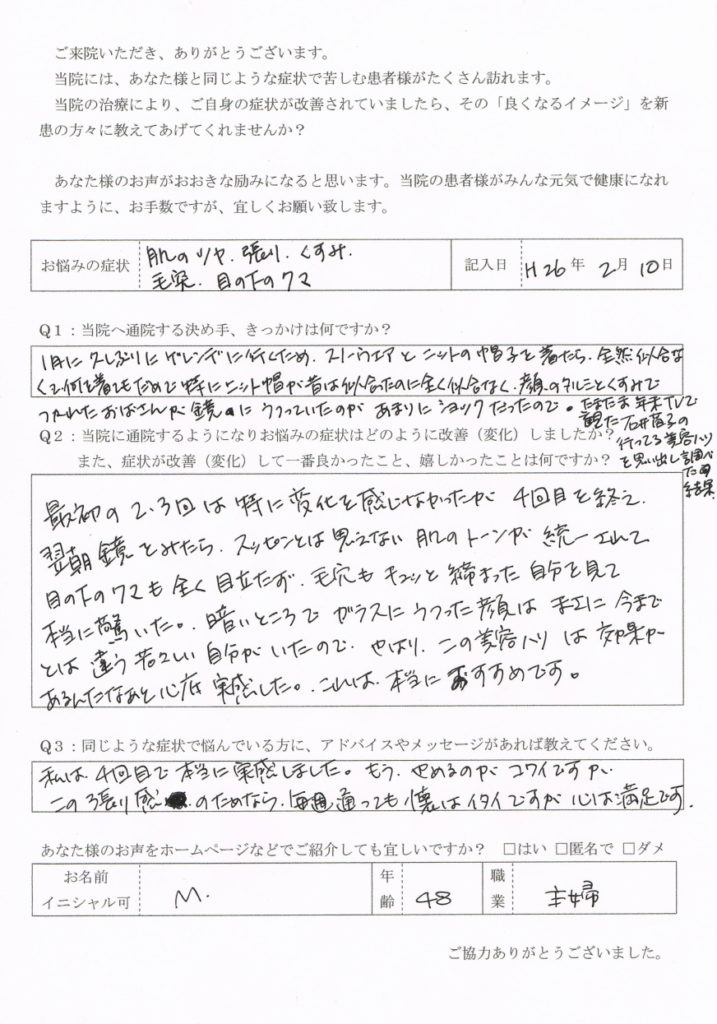 ご来院いただき、ありがとうございます。
当院には、あなた様と同じような症状で苦しむ患者様がたくさん訪れます。
当院の治療により、ご自身の症状が改善されていましたら、その「良くなるイメージ」を新
患の方々に教えてあげてくれませんか？
あなた様のお声がおおきな励みになると思います。当院の患者様がみんな元気で健康になれ
ますように、お手数ですが、宜しくお願い致します。
お悩みの症状
肌のツヤ．張り．くすみ．
毛穴．目の下のクマ
記入日 H26年 2月 10日
Q1：当院へ通院する決め手、きっかけは何ですか？
1月に久しぶりにゲレンデに行くため．スノーウエアとニットの帽子を着たら．全然似合な
くて何を着てもだめで特にニット帽が昔は似合ったのに全く似合なく．顔のタルミとくすみで
つかれたおばさんが鏡にうつっていたのがあまりにショックだったので。たまたま年末TVで
観た石井
の
行ってる美容ハリ
を思い出し調べ
た
結果
Q2：当院に通院するようになりお悩みの症状はどのように改善（変化）しましたか？
また、症状が改善（変化）して一番良かったこと、嬉しかったことは何ですか？
最初の2．3回は特に変化を感じなかったが 4回目を終え．
翌朝鏡をみたら．スッピンとは思えない肌のトーンが統一されて
目の下のクマも全く目立たず．毛穴もキュッと締まった自分を見て
本当に驚いた。暗いところでガラスにうつった顔は まさに今まで
とは違う若々しい自分がいたので．やはり．この美容ハリは効果が
あるんだなあと心底実感した。これは．本当におすすめです。
Q3：同じような症状で悩んでいる方に、アドバイスやメッセージがあれば教えてください。
私は．4回目で本当に実感しました。もう．やめるのがコワイですが．
この張り感のためなら．毎週通っても懐はイタイですが心は満足です．
あなた様のお声をホームページなどでご紹介しても宜しいですか？ □はい □匿名で □ダメ
お名前
イニシャル可
M.
年齢
48
職業
主婦
ご協力ありがとうございました。